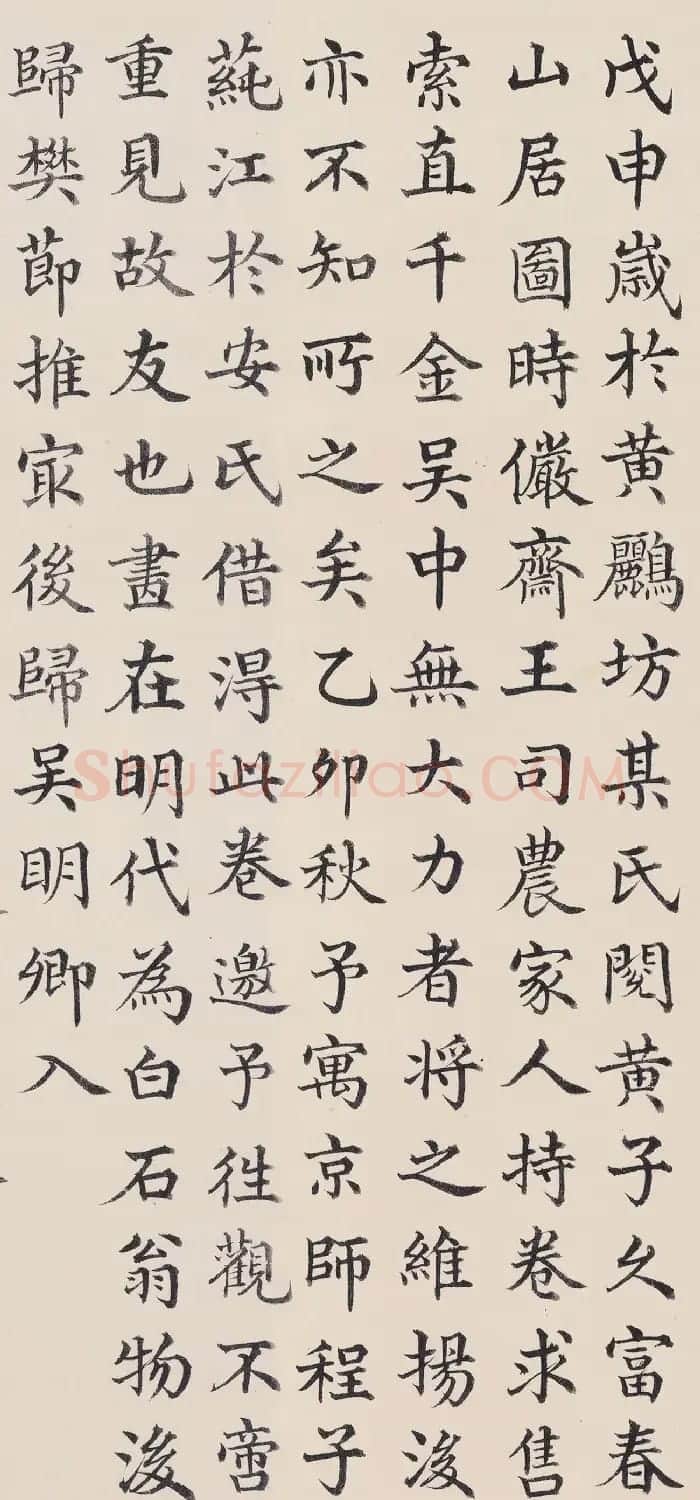 戊申歲於黃鸝坊某氏閱黃子久富春
山居圖時儼齋王司農家人持卷求售
索直千金吴中無大力者将之維揚後
亦不知所之矣乙卯秋予寓京師程子
蒓江於安氏借得此卷邀予往觀不啻
重見故友也畫在明代為白石翁物後
歸樊節推冣後歸吴明卿入
Shufaziliao.COM